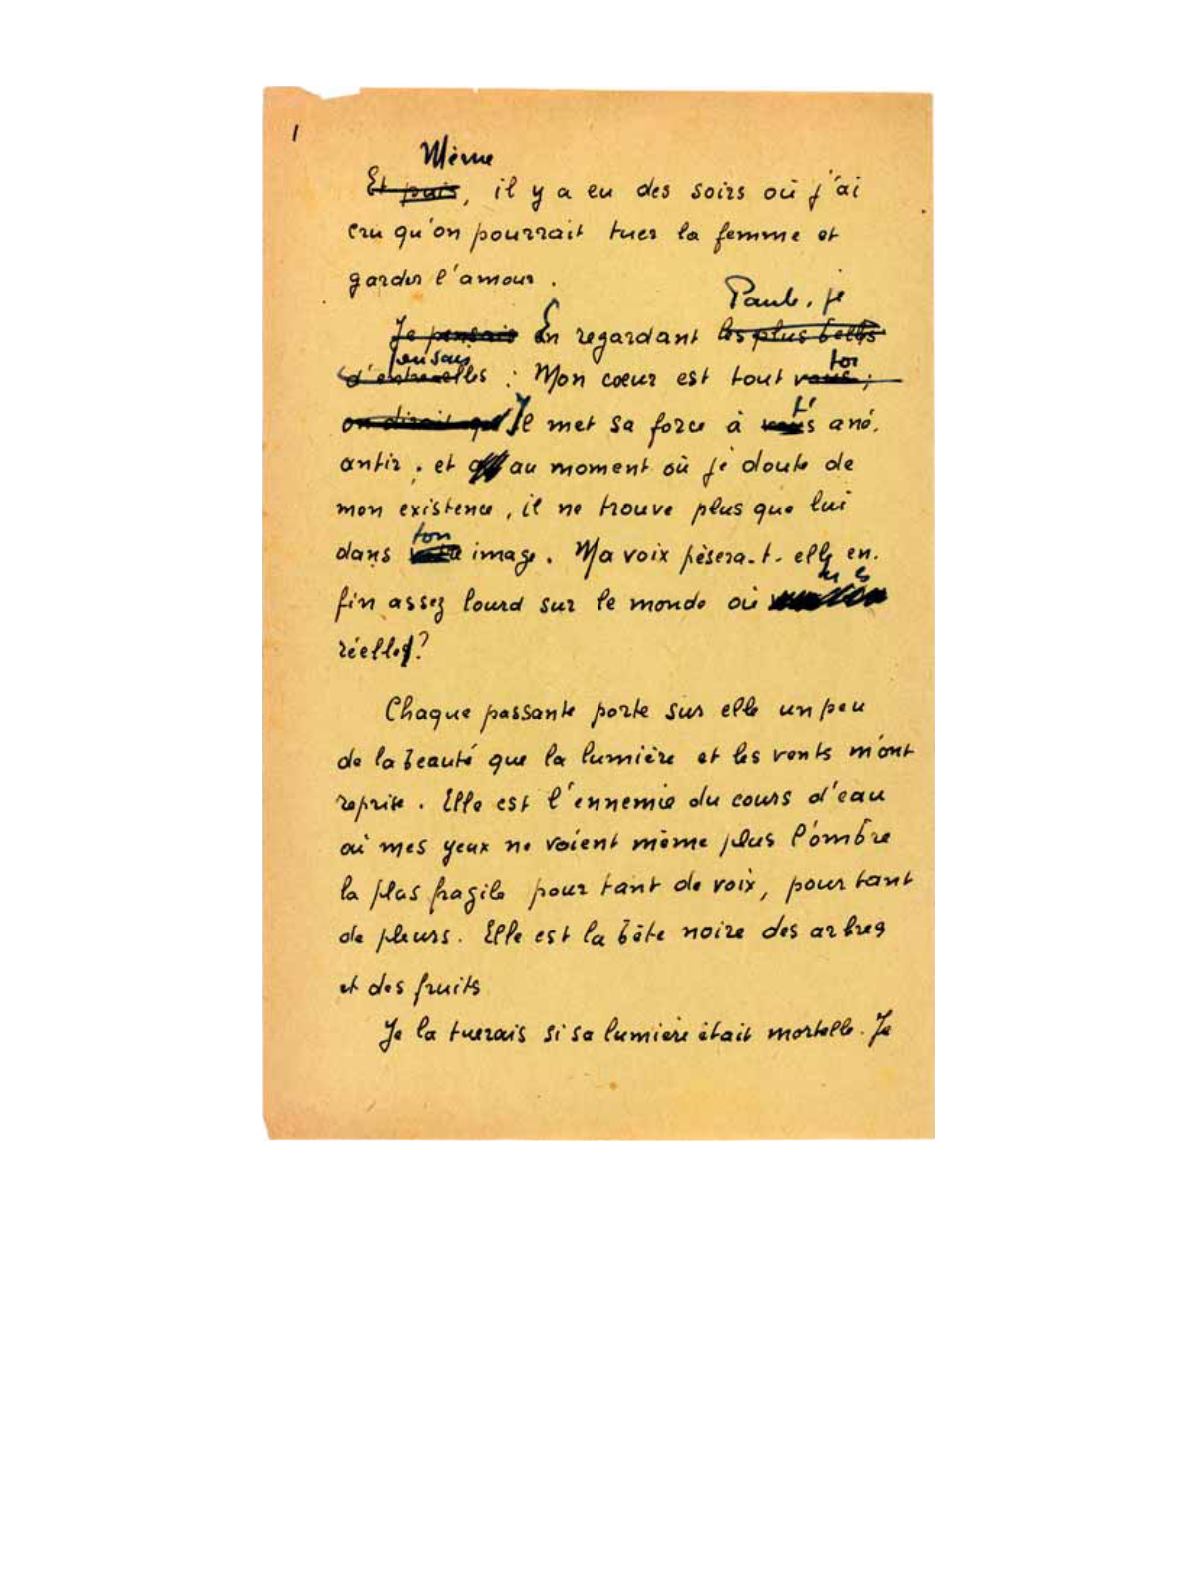 1
Même
Et puis, il y a eu des soirs où j'ai
cru qu'on pourrait tuer la femme et
garder l'amour.
Paule, je
Je pensais En regardant les plus belles
pensais
d'entre elles : Mon cœur est tout vous ;
toi
on dirait qu' Il met sa force à vous ané.
t'
antir ; et au moment où je doute de
mon existence, il ne trouve plus que lui
ton
dans image. Ma voix pèsera-t-elle en.
tu es
fin assez lourd sur le monde où
réelle ?
Chaque passante porte sur elle un peu
de la beauté que la lumière et les vents m'ont
reprise. Elle est l'ennemie du cours d'eau
où mes yeux ne voient même plus l'ombre
la plus fragile pour tant de voix, pour tant
de pleurs. Elle est la bête noire des arbres
et des fruits
Je la tuerais si sa lumière était mortelle. Je